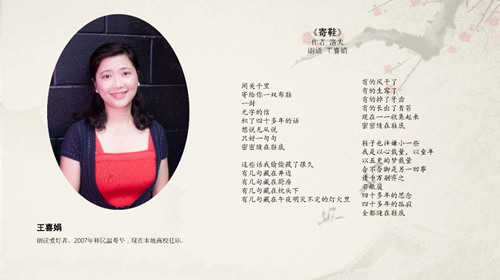 《寄鞋》
作者 洛夫
朗诵 王喜娟
间关千里
寄给你一双布鞋
一封
无字的信
积了四十多年的话
想说无从说
只好一句句
密密缝在鞋底
这些话我偷偷藏了很久
有几句藏在井边
有几句藏在厨房
有几句藏在枕头下
有几句藏在午夜明灭不定的灯火里
有的风干了
有的生霉了
有的掉了牙齿
有的长出了青苔
现在一一收集起来
密密缝在鞋底
鞋子也许嫌小一些
我是以心裁量，以童年
以五更的梦裁量
合不合脚是另一回事
请千万别弃之
若敝屣
四十多年的思念
四十多年的孤寂
全都缝在鞋底
王喜娟
朗读爱好者，2007年移民温哥华，现在本地高校任职。